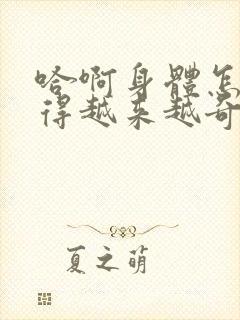 哈啊身體怎
得越来越奇
夏之萌